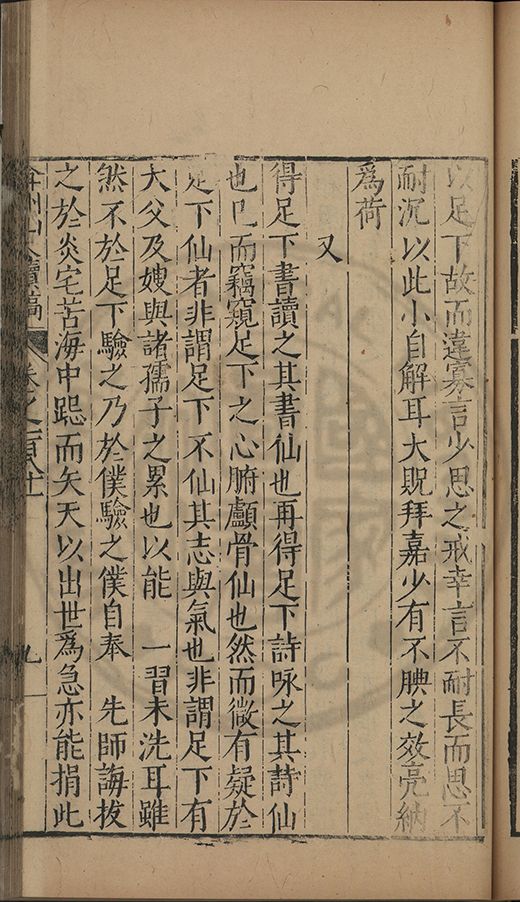 以足下故而違寡言少思之戒幸言不耐長而思不
耐沉以此小自解耳大貺拜嘉少有不腆之效亮納
爲荷
又
得足下書讀之其書仙也再得足下詩咏之其詩仙
也已而竊窺足下之心腑顱骨仙也然而微有疑於
足下仙者非謂足下不仙其志與氣也非謂足下有
大父及嫂與諸孺子之累也以能 一習未洗耳雖
然不於足下驗之乃於僕驗之僕自奉 先師誨拔
之於炎宅苦海中跽而矢天以出世爲急亦能捐此
弇州山人續稿 卷之一百
九